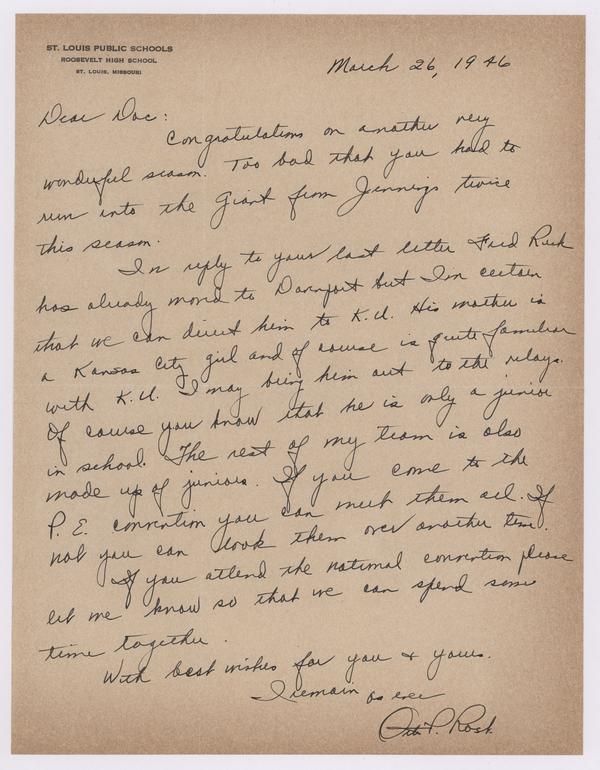 ST. LOUIS PUBLIC SCHOOLS
ROOSEVELT HIGH SCHOOL
ST. LOUIS, MISSOURI
March 26, 1946
Dear Doc:
Congratulations on another very
wonderful season. Too bad that you had to
run into the Giant from Jennings twice
this season.
In reply to your last letter Fred
has already moved to Davenport but I'm certain
that we can direct him to K.U. His mother is
a Kansas City girl and of course is quite familiar
with K.U. I may bring him out to the relays.
Of course you know that he is only a junior
in school. The rest of my team is also
made up of juniors. If you come to the
P. E. convention you can meet them all. If
not you can look them over another time.
If you attend the national convention please
let me know so that we can spend some
time together.
With best wishes for you & yours.
I remain as ever
P. Rost